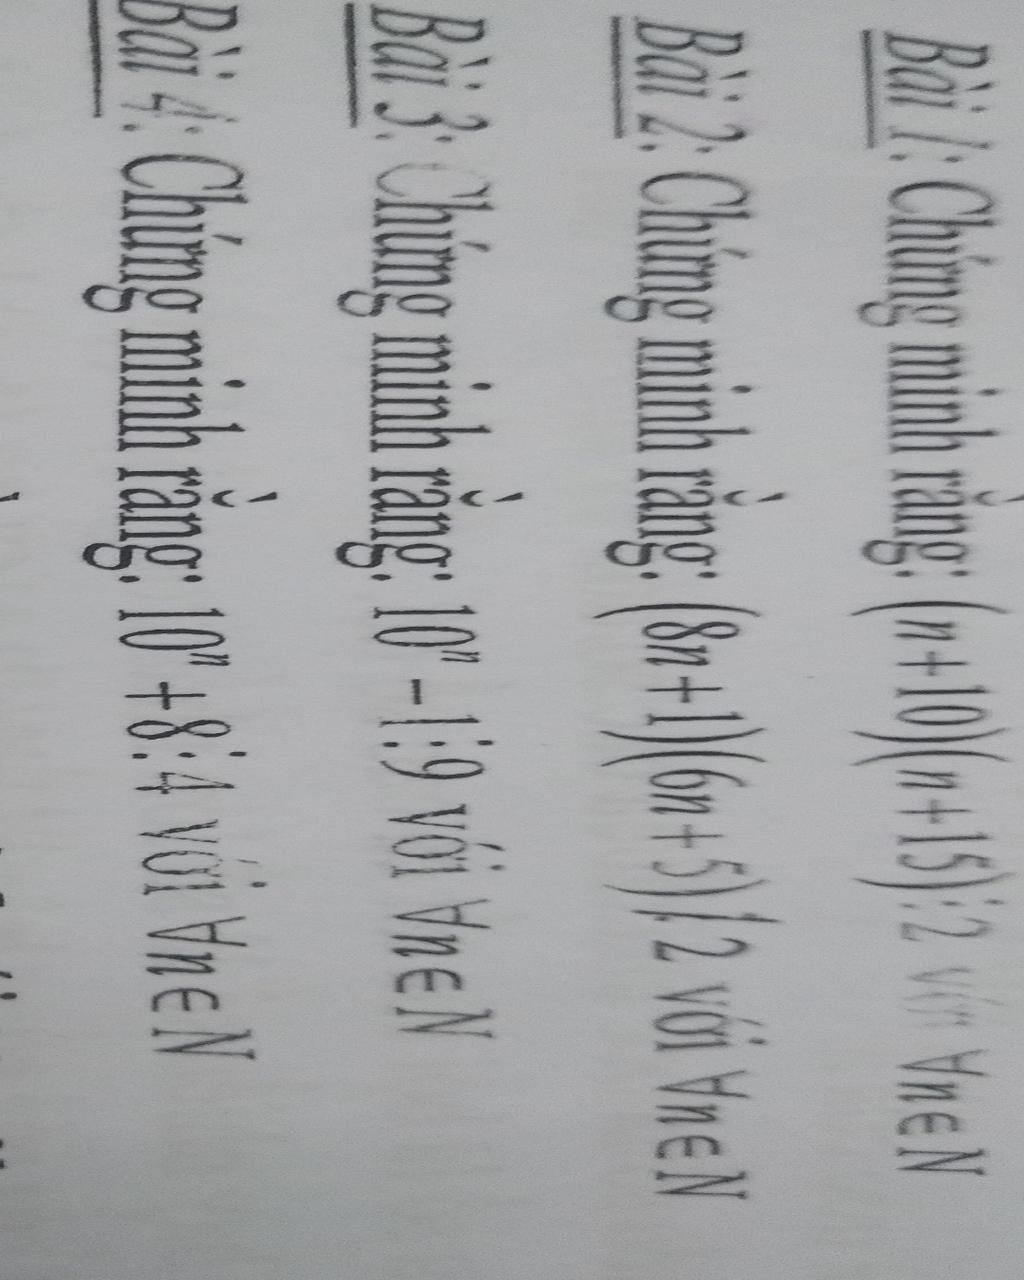 Bài 1: Chứng minh rằng: (n+10)(n+15)⋮2 với ∀n∈N
Bài 2: Chứng minh rằng: (8n+1)(6n+5)⋮̸2 với ∀n∈N
Bài 3: Chứng minh rằng: 10ⁿ−1⋮9 với ∀n∈N
Bài 4: Chứng minh rằng: 10ⁿ+8⋮4 với ∀n∈N